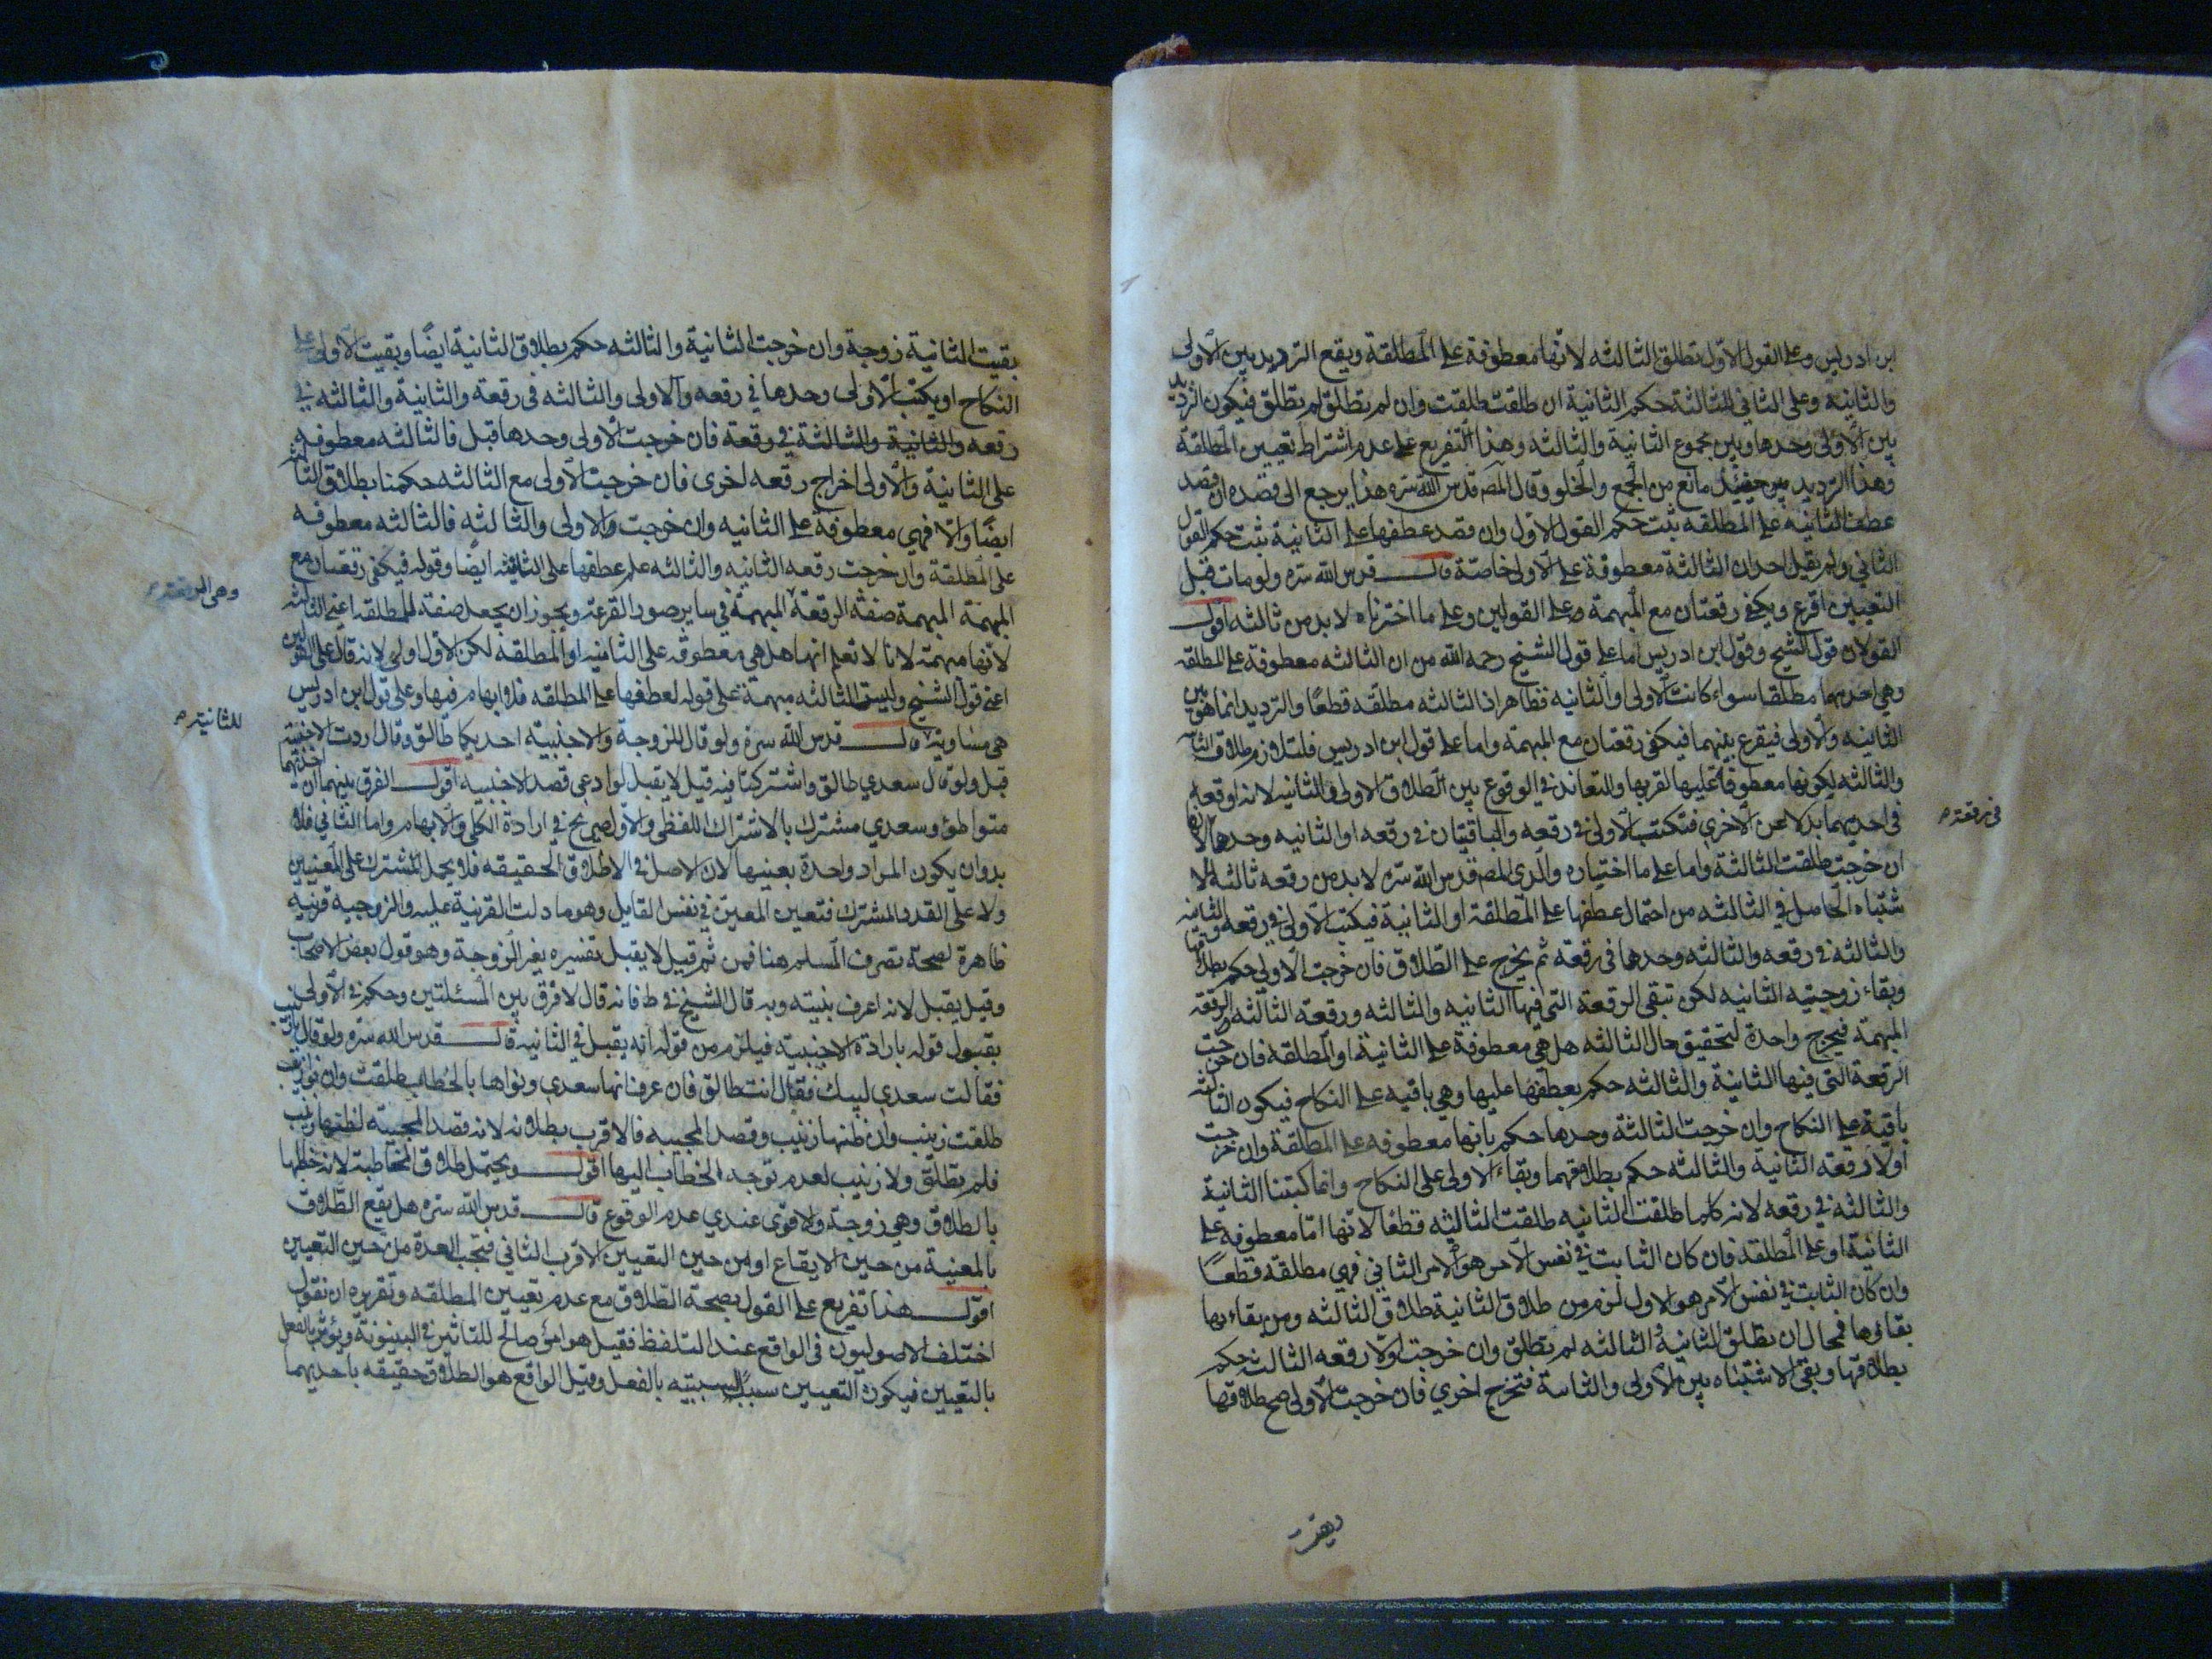 ابن ادريس وعلى القول الاول تطلق الثالثه لانها معطوفة على المطلقة ويقع الترديد بين الاولى
والثانية وعلى الثاني للثالثة حكم الثانية ان طلقت طلقت وان لم تطلق لم تطلق فيكون الترديد
بين الاولى وحدها وبين مجموع الثانية والثالثه وهذا التفريع على عدم اشتراط تعيين المطلقة
وهذا الترديد حينئذ مانع من الجمع والخلو وقال المصـ قدس الله سره هذا يرجع الى قصده ان قصد
عطف الثانيه على المطلقه ثبت حكم القول الاول وان قصد عطفها على الثانية ثبت حكم القول
الثاني ولم يقل احد ان الثالثة معطوفة على الاولى خاصة قال قدس الله سره ولو مات قبل
التعيين اقرع ويكفي رقعتان مع المبهمة وعلى القولين وعلى ما اخترناه لا بد من ثالثه اقول
القولان قول الشيخ وقول ابن ادريس اما على قول الشيخ رحمه الله من ان الثالثه معطوفة على المطلقه
وهي احديهما مطلقا سواء كانت الاولى او الثانيه فظاهر ان الثالثه مطلقه قطعًا والترديد انما هو بين
الثانيه والاولى فيقرع بينهما فيكفي رقعتان مع المبهمة واما على قول ابن ادريس فلتلازم طلاق الثانية
والثالثه لكونها معطوفة عليها لقربها والتعاند في الوقوع بين الطلاق الاولى والثانيه لانه اوقعه
في احديهما بدلا عن الاخرى فتكتب الاولى في رقعه والباقيتان في رقعه او الثانيه وحدها
في رقعة
ان خرجت طلقت الثالثة واما على ما اختياره والدي المصـ قدس الله سره لا بد من رقعه ثالثه للا
شتباه الحاصل في الثالثه من احتمال عطفها على المطلقة او الثانية فيكتب الاولى في رقعه والثانية
والثالثة في رقعه والثالثه وحدها في رقعة ثم يخرج على الطلاق فان خرجت الاولى حكم بطلاقها
وبقاء زوجيته الثانيه لكن تبقى الرقعة التي فيها الثانيه والثالثه ورقعة الثالثه والرقعه
المبهمة فيخرج واحدة لتحقيق حال الثالثه هل هي معطوفة على الثانية او المطلقه فان خرجت
الرقعة التي فيها الثانية والثالثه حكم بعطفها عليها وهي باقيه على النكاح فيكون الثالثه
باقية على النكاح وان خرجت الثالثة وحدها حكم بانها معطوفه على المطلقة وان خرجت
اولا رقعة الثانية والثالثه حكم بطلاقهما وبقاء الاولى على النكاح وانما كتبنا الثانية
والثالثة في رقعه لانه كلما طلقت الثانيه طلقت الثالثه قطعًا لانها اما معطوفه على
الثانية او على المطلقه فان كان الثابت في نفس الامر هو الامر الثاني فهي مطلقه قطعًا
وان كان الثابت في نفس الامر هو الاول لزم من طلاق الثانية طلاق الثالثه ومن بقاءها
بقاؤها فمحال ان تطلق الثانية والثالثه لم تطلق وان خرجت اولا رقعه الثالثه حكم
بطلاقها وبقى الاشتباه بين الاولى والثانية فتخرج اخرى فان خرجت الاولى صح طلاقها
بقيت الثانية زوجة وان خرجت الثانية والثالثه حكم بطلاق الثانية ايضًا وبقيت الاولى على
النكاح او يكتب الاولى وحدها في رقعه والاولى والثالثه في رقعة والثانية والثالثه في
رقعه والثانية والثالثة في رقعة فان خرجت الاولى وحدها قبل فالثالثه معطوفه
على الثانية والاولى اخراج رقعه اخرى فان خرجت الاولى مع الثالثه حكمنا بطلاق الثالثه
ايضًا والا فهي معطوفة على الثانيه وان خرجت والاولى والثالثه فالثالثه معطوفه
على المطلقة وان خرجت رقعه الثانيه والثالثه علم عطفها على الثانيه ايضا وقوله فيكفى رقعتان مع
المبهمة المبهمة صفة الرقعة المبهمة في ساير صور القرعة ويجوز ان يجعل صفة للمطلقه اعني الثالثه
وهى الرقعة
لانها مبهمة لانا لا نعلم انها هل هي معطوفه على الثانيه او المطلقة لكن الاول اولى لانه قال على القولين
اعني قول الشيخ وليست الثالثه مبهمة على قوله لعطفها على المطلقه فلا ابهام فيها وعلى قول ابن ادريس
هي مساوية قال قدس الله سره ولو قال للزوجة والاجنبية احديكما طالق وقال اردت الاجنبية
للثانية
قبل ولو قال سعدي طالق واشتركتا فيه قيل لا يقبل لو ادعى قصد الاجنبيه اقول الفرق بينهما ان احديهما
متواطئ وسعدي مشترك بالاشتراك اللفظي والاول صريح في ارادة الكلي والابهام واما الثاني فلا
بد وان يكون المراد واحدة بعينها لان الاصل في الاطلاق الحقيقه فلا يحمل المشترك على المعنيين
ولا على القدر المشترك فتعين المعين في نفس القايل وهو ما دلت القرنية عليه والزوجية قرنيه
ظاهرة لصحة تصرف المسلم هنا فمن ثم قيل لا يقبل تفسيره بغير الزوجة وهو قول بعض الاصحاب
وقيل يقبل لانه اعرف بنيته وبه قال الشيخ في ط فانه قال لا فرق بين المسئلتين وحكم في الاولى
بقبول قوله بارادة الاجنبيه فيلزم من قوله انه يقبل في الثانيه قال قدس الله سره ولو قال يا زينب
فقالت سعدى لبيك فقال انت طالق فان عرف انها سعدى ونواها بالخطاب طلقت وان نوى زينب
طلقت زينب وان ظنها زينب وقصد المجيبه فالاقرب بطلانه لانه قصد المجيبه لظنها زينب
فلم تطلق ولا زينب لعدم توجه الخطاب اليها اقول ويحتمل طلاق المخاطبة لانه خاطبها
بالطلاق وهي زوجة والاقوى عندي عدم الوقوع قال قدس الله سره هل يقع الطلاق
بالمعنية من حين الايقاع او من حين التعيين الاقرب الثاني فتجب العدة من حين التعيين
اقول هذا تفريع على القول بصحة الطلاق مع عدم تعيين المطلقه وتقريره ان نقول
اختلف الاصوليون في الواقع عند التلفظ فقيل هو امر صالح للتاثير في البينونة ويؤثر بالفعل
بالتعيين فيكون التعيين سببًا لسببيته بالفعل وقيل الواقع هو الطلاق حقيقه باحديهما